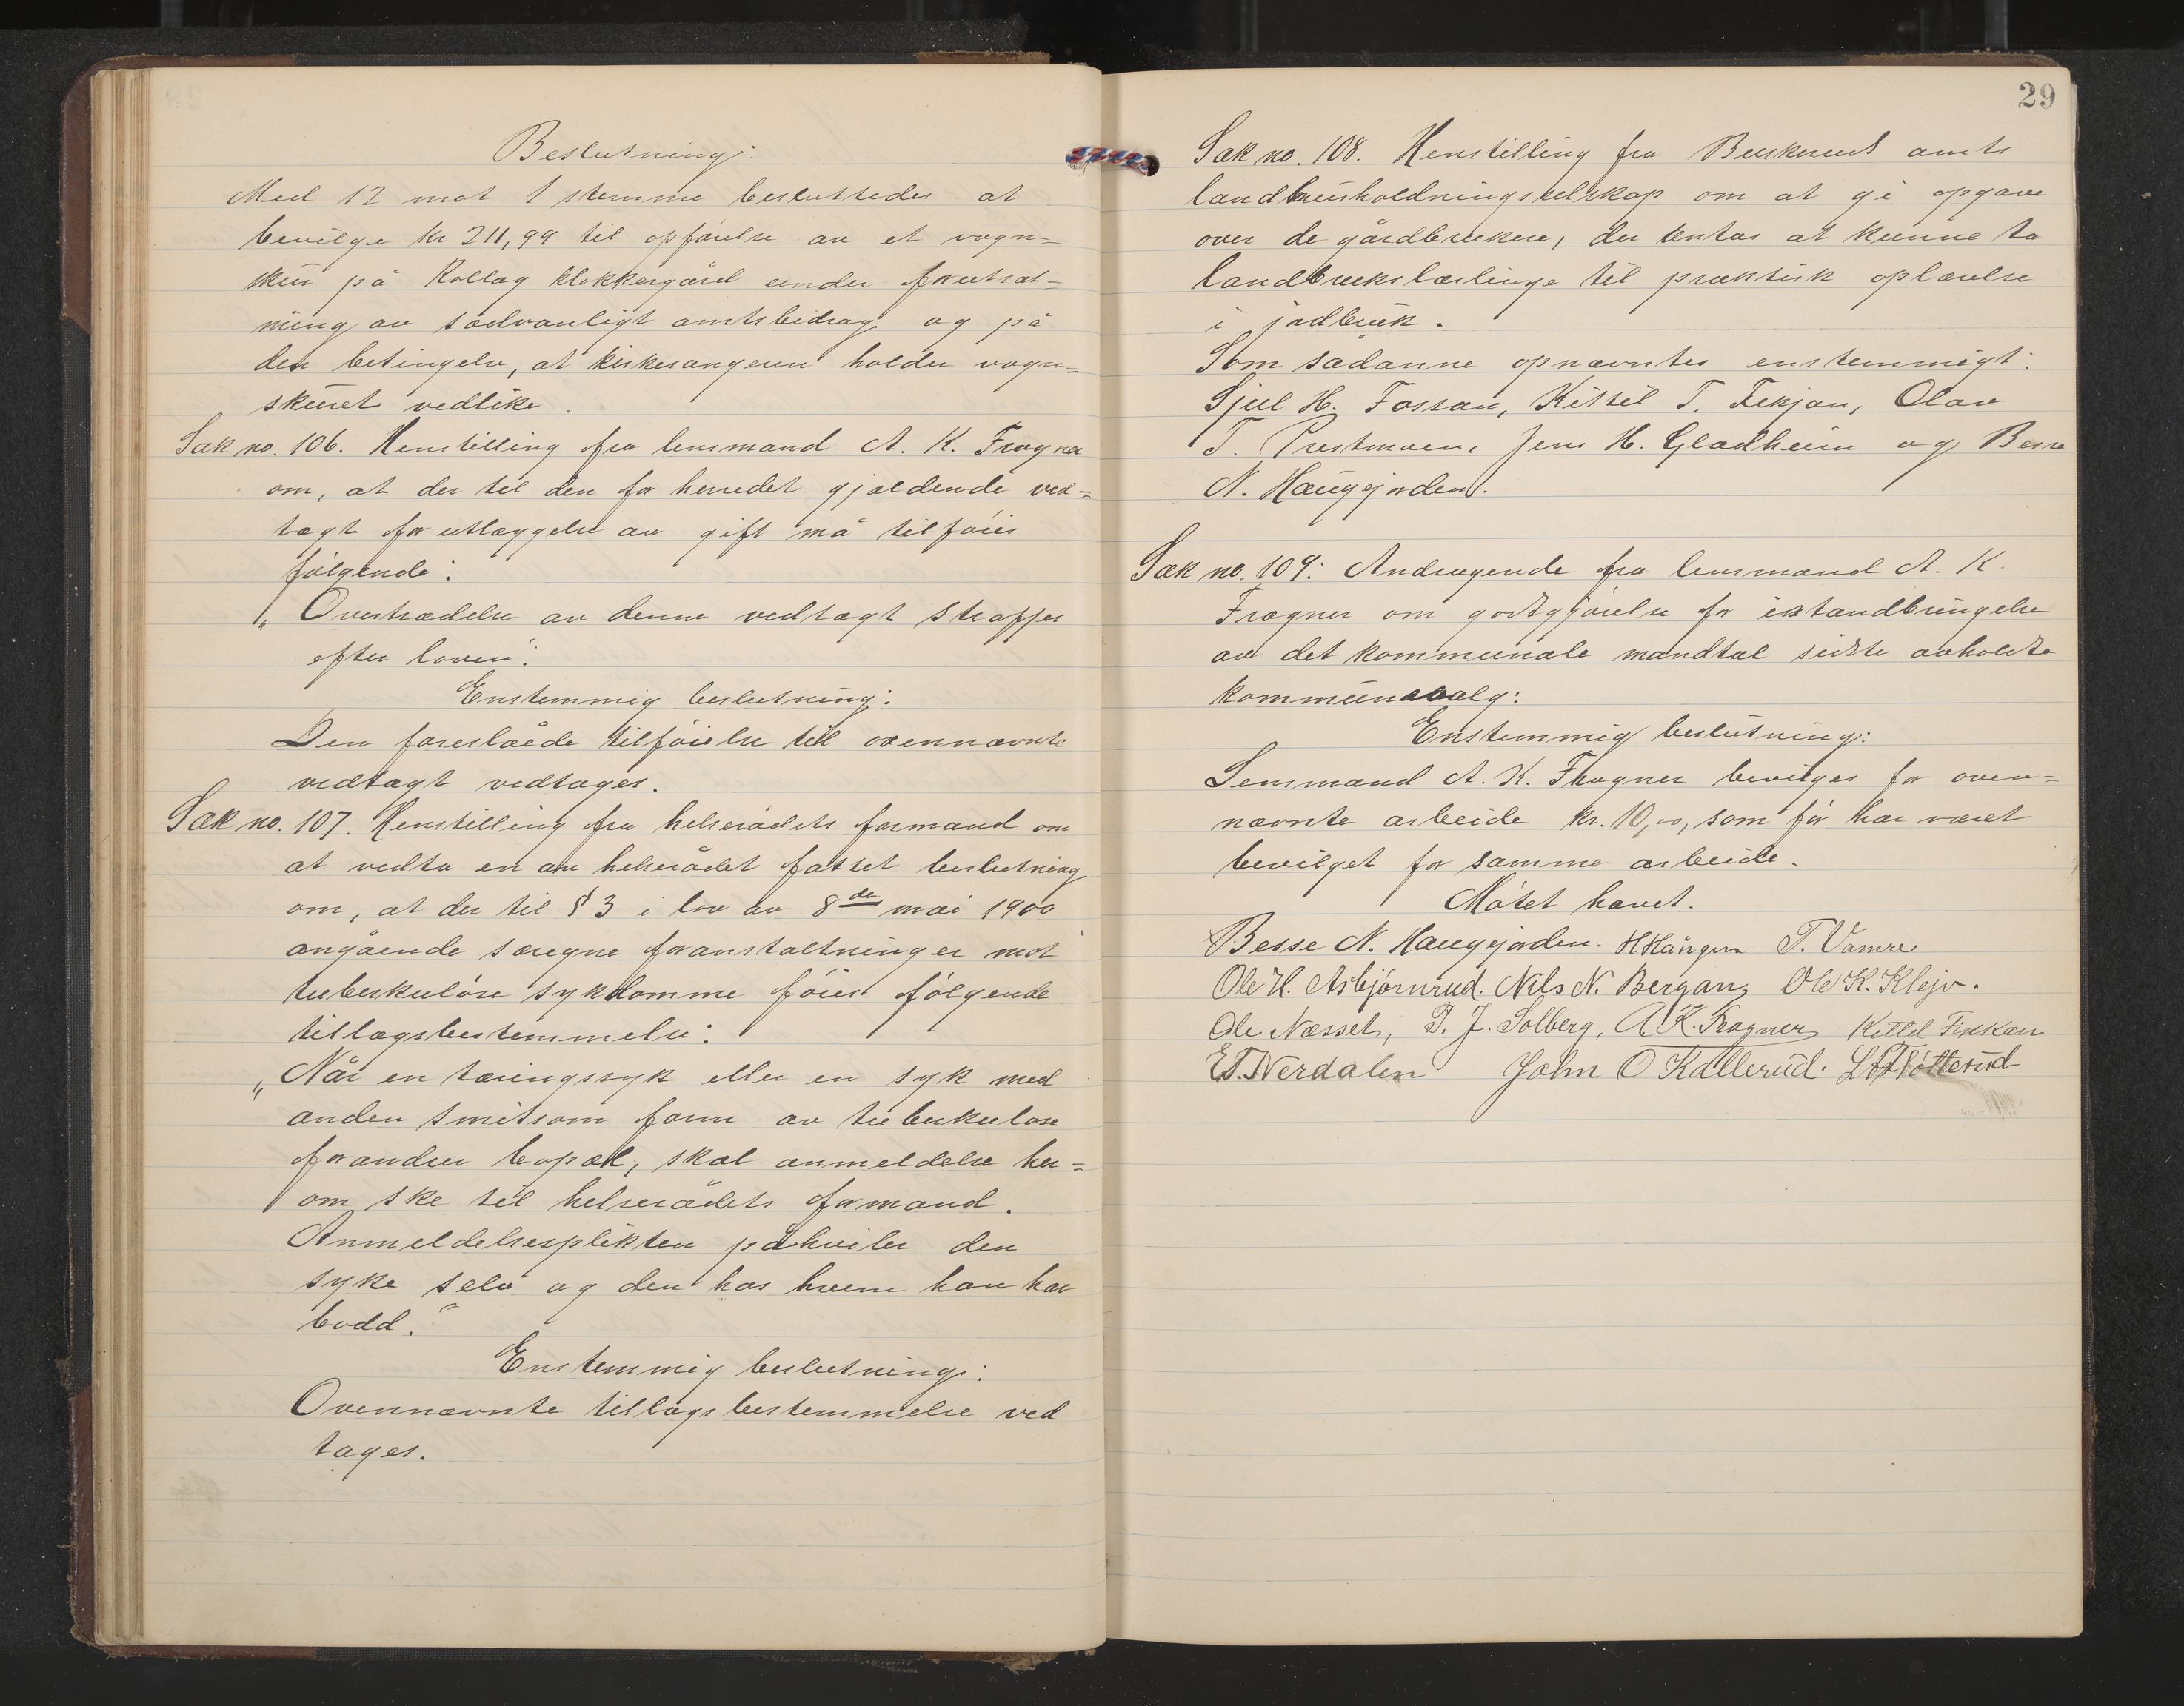 Beslutning:
Med 12 mot 1 stemme besluttedes at
bevilge kr 211,99 til opførelse av et vogn=
skur på Rollag klokkergård under forutsæt=
ning av sædvanligt amtsbidrag og på
den betingelse, at kirkesangeren holder vogn=
skuret vedlike.
Sak no. 106. Henstilling fra lensmand A. K. Fragner
om, at der til den for herredet gjældende ved=
tægt for utlæggelse av gift må tilføies
følgende:
„Overtrædelse av denne vedtægt straffes
efter loven".
Enstemmig beslutning:
Den foreslåede tilføielse til ovennævnte
vedtægt vedtages.
Sak no. 107. Henstilling fra helserådets formand om
at vedta en av helserådet fattet beslutning
om, at der til § 3 i lov av 8de mai 1900
angående særegne foranstaltninger mot
tuberkuløse sykdomme føies følgende
tillægsbestemmelse:
„Når en tæringssyk eller en syk med
anden smitsom form av tuberkulose
forandrer bopæl, skal anmeldelse her=
om ske til helserådets formand.
Anmeldelsesplikten påhviler den
syke selv og den hos hvem han har
bodd."
Enstemmig beslutning:
Ovennævnte tillægsbestemmelse ved
tages.
29
Sak no. 108. Henstilling fra Buskerud amts
landhusholdningsselskap om at gi opgave
over de gårdbrukere, der antas at kunne ta
landbrukslærlinge til praktisk oplærelse
i jordbruk.
Som sådanne opnævntes enstemmigt:
Sjul H. Fossan, Kittil T. Fekjan, Olav
T. Prestmoen, Jens H. Gladheim og Besse
N. Haugjorden.
Sak no. 109: Andragende fra lensmand A. K.
Fragner om godtgjørelse for istandbringelse
av det kommunale mandtal sidste avholdte
kommunevalg:
Enstemmig beslutning:
Lensmand A. K. Fragner bevilges for oven=
nævnte arbeide kr. 10,00, som før har været
bevilget for samme arbeide.
Møtet hævet.
Besse N. Haugjorden. H Haugen T. Vamre
Ole H. Asbjørnrud. Nils N. Bergan, Ole K. Klejv.
Ole Næsset, T. J. Solberg, A. K. Fragner Kittil Fekan
E T. Nerdalen John O Kallerud.